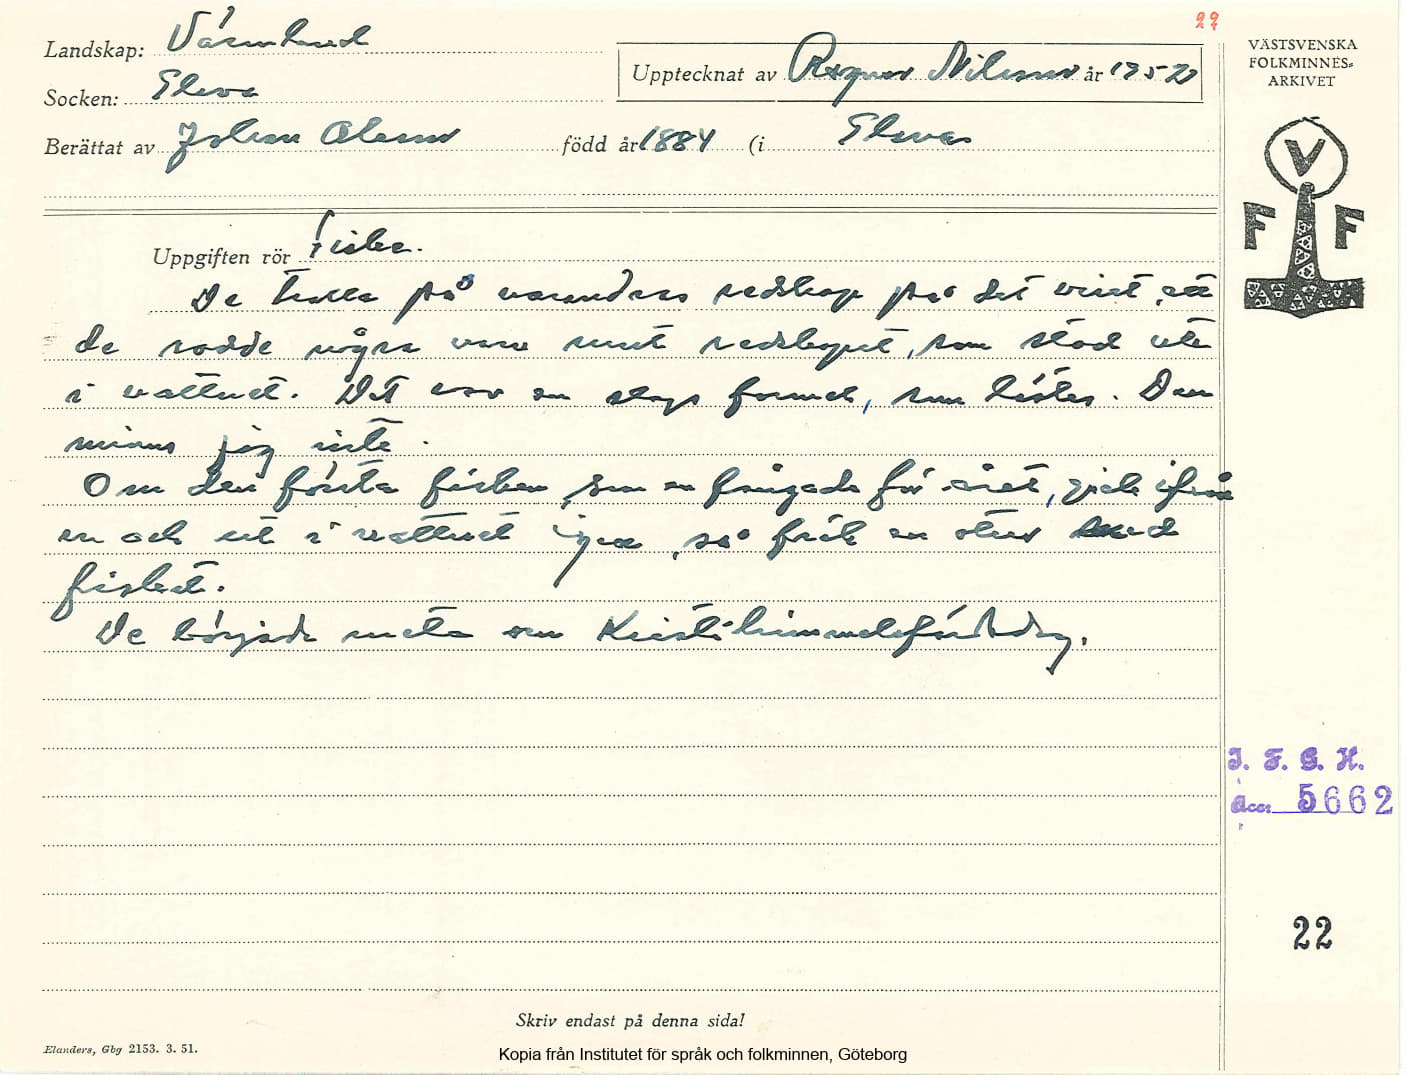 22
Landskap: Värmland
Socken: Eleva
Upptecknat av Ragnar Nilsson år 1952
Berättat av Johan Olsson född år 1884 (i
VÄSTSVENSKA
FOLKMINNES-
ARKIVET
V
F F
Uppgiften rör Fiske.
De trolla på varandras redskap på det viset, att
de rodde några varv runt redskapet, som stod ute
i vattnet. Det var en slags formel, som lästes. Den
minns jag inte.
Om den första fisken, som en fångade för året, gick ifrån
en och ut i vattnet igen, så fick en otur med
fisket.
De började meta om Kristi himmelsfärdsdag.
I. F. G. H.
acc: 5662
22
Skriv endast på denna sida!
Elanders, Gbg 2153. 3. 51.
Kopia från Institutet för språk och folkminnen, Göteborg